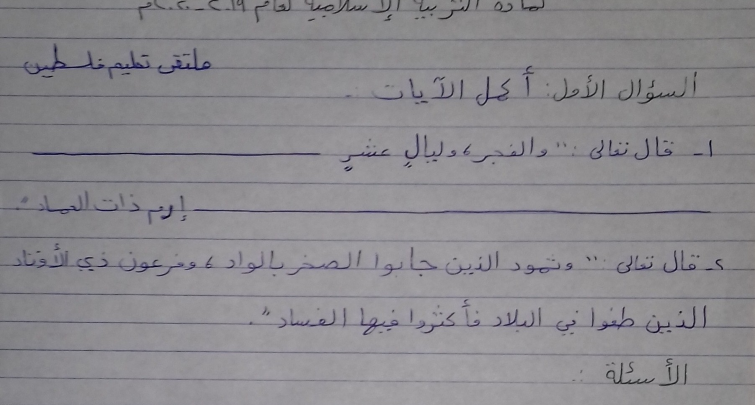 لمادة التربية الإسلامية لعام ٢٠١٩-٢٠٢٠م
ملتقى تعليم فلسطين
السؤال الأول: أكمل الآيات :
١- قال تعالى : " والفجر، وليالٍ عشرٍ
إرم ذات العماد ".
٢- قال تعالى : " وثمود الذين جابوا الصخر بالواد، وفرعون ذي الأوتاد
الذين طغوا في البلاد فأكثروا فيها الفساد ".
الأسئلة :